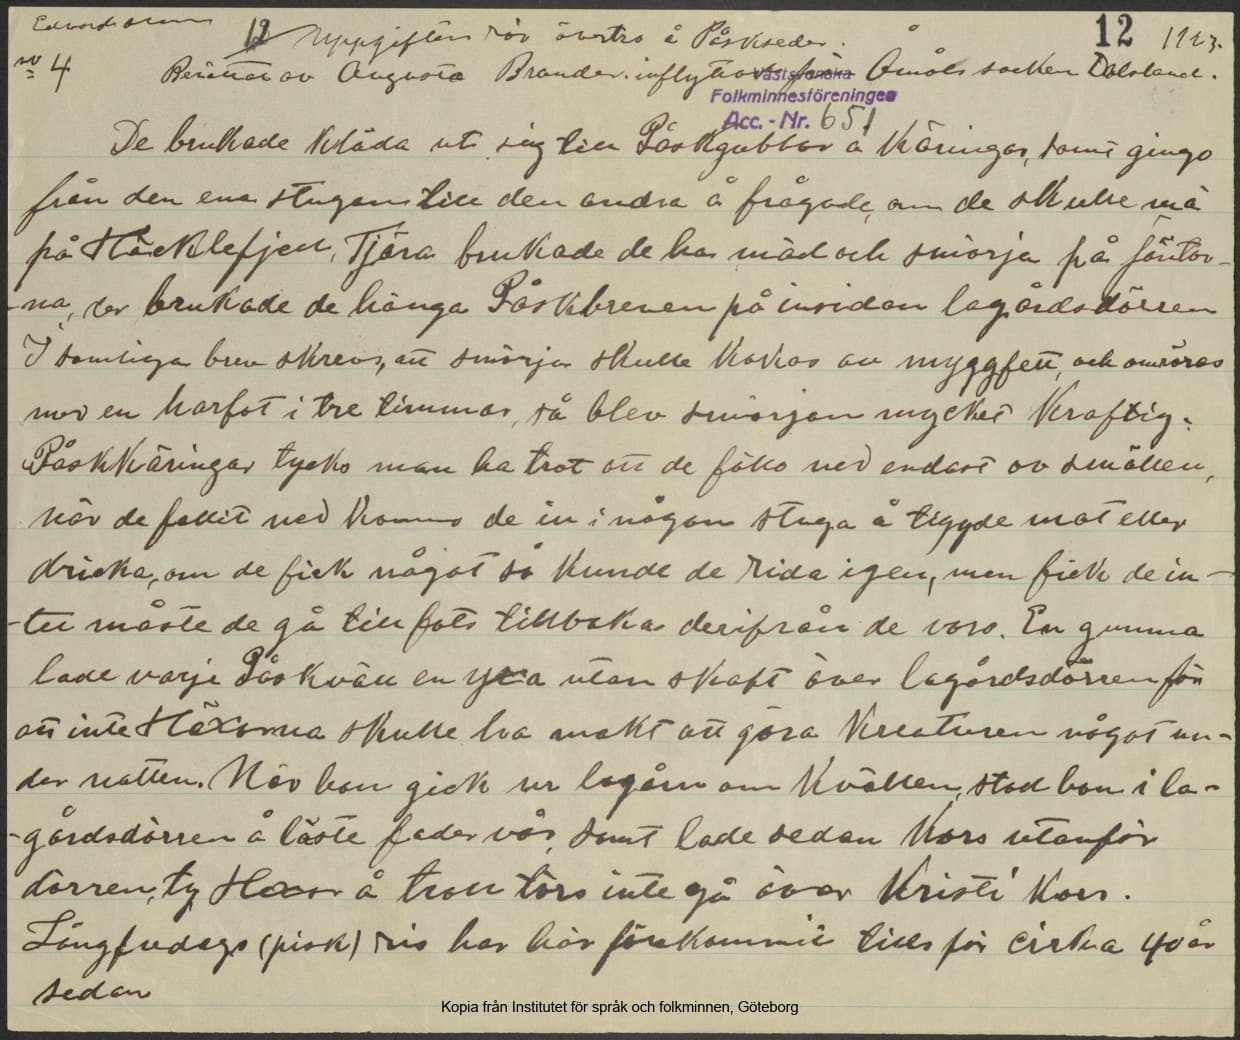 12 Uppgifter rör övertro å Påskseder. 12 1923.
No 4 Berättat av Augusta Brander. inflyttad från Åmåls socken Dalsland.
Västsvenska
Folkminnesföreningen
Acc. - Nr. 651
De brukade kläda ut sig till Påskgubbar å Käringar, samt gingo
från den ena stugan till den andra å frågade, om de skulle mä
på Häcklefjell, Tjära brukade de ha mäd och smörja på föntor-
-na, der brukade de hänga Påskbreven på insidan lagårdsdörren
I somliga brev skrevs, att smörja skulle kokas av myggfett, och omröras
med en harfot i tre timmar, så blev smörjan mycket kraftig.
Påskkäringar tycks man ha trot att de föllo ned endast av smällen,
när de fallit ned kommo de in i någon stuga å tiggde mat eller
dricka, om de fick något så kunde de rida igen, men fick de in-
-tet måste de gå till fots tillbaka derifrån de voro. En gumma
lade varje Påskväll en yxa utan skaft över lagårdsdörren för
att inte Häxorna skulle ha makt att göra kreaturen något un-
der natten. När hon gick ur lagårn om kvällen, stod hon i la-
-gårdsdörren å läste fader vår, samt lade sedan kors utanför
dörren, ty Hexor å troll törs inte gå över Kristi kors.
Långfredags (pisk) ris har här förekommit tills för cirka 40 år
sedan
Kopia från Institutet för språk och folkminnen, Göteborg